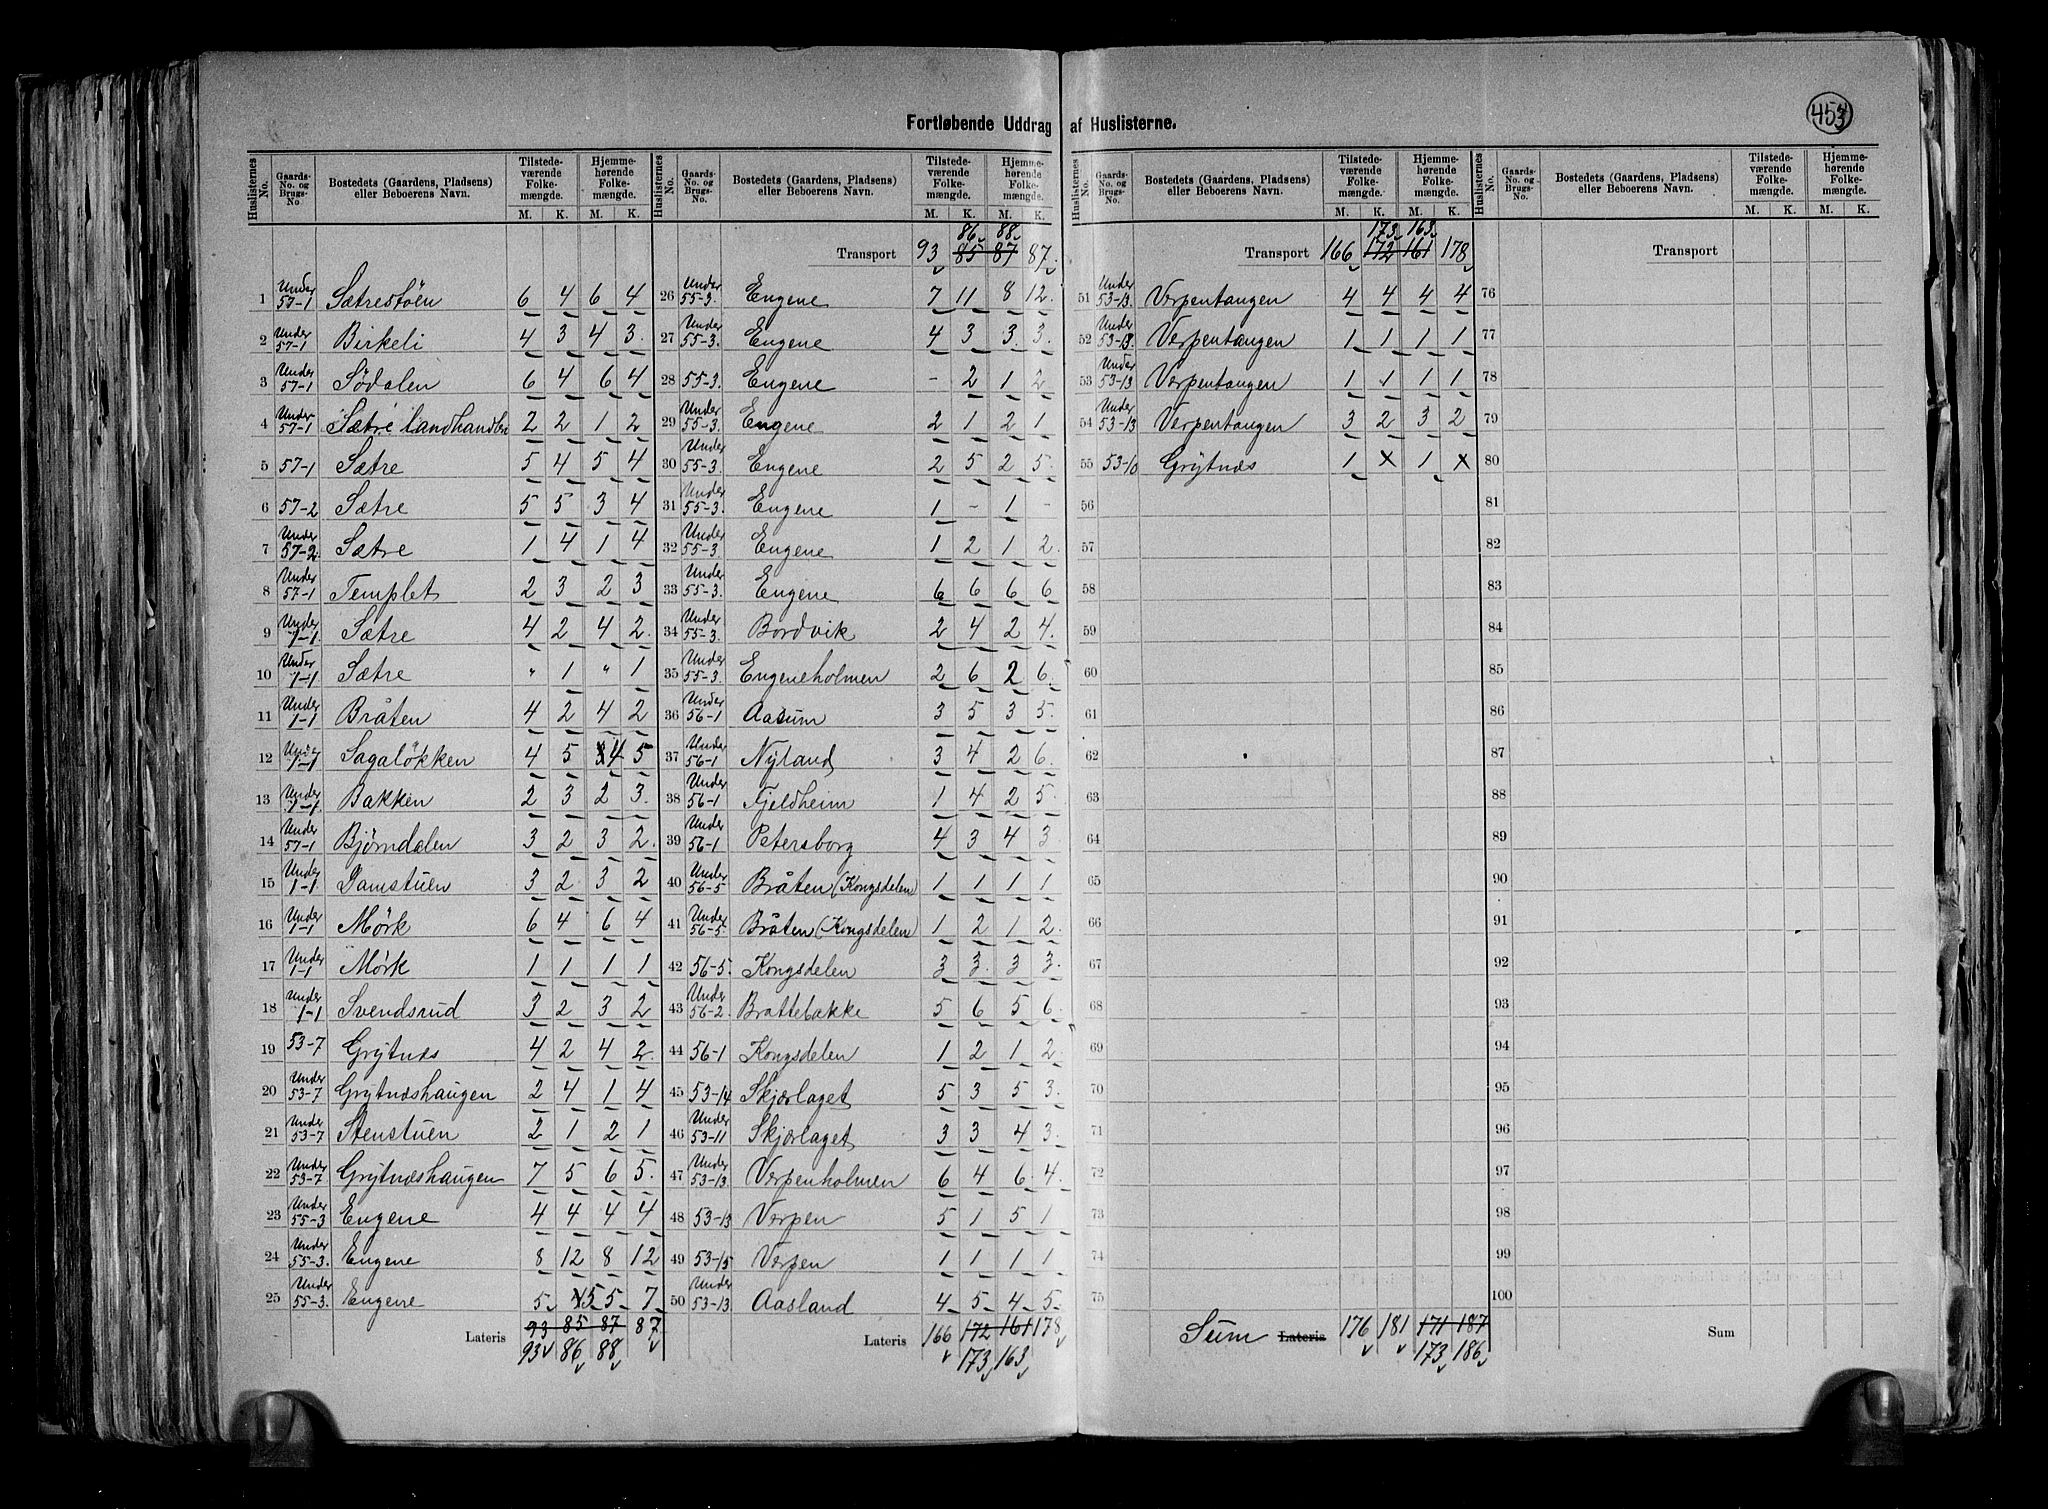 453
Fortløbende Uddrag af Huslisterne.
Huslisternes No. Gaards- No. og Brugs- No Bostedets (Gaardens, Pladsens) eller Beboerens Navn. Tilstede- værende Folke- mængde. M. K. Hjemme- hørende Folke- mængde. M. K.
1 Under 57-1 Sætrestøen 6 4 6 4
2 Under 57-1 Birkeli 4 3 4 3.
3 Under 57-1 Södalen 6 4 6 4
4 Under 57-1 Sætre landhandleri 2 2 1 2
5 57-1 Sætre 5 4 5 4
6 57-2 Sætre 5 5 3 4
7 Under 57-2. Sætre 1 4 1 4
8 Under 57-1 Templet 2 3 2 3
9 Under 1-1. Sætre 4 2 4 2.
10 Under 1-1 Sætre " 1 " 1
11 Under 1-1 Bråten 4 2 4 2
12 Under 1-1 Sagaløkken 4 5 4 5
13 Under 1-1. Bakken 2 3 2 3.
14 Under 57-1 Bjørndalen 3 2 3 2.
15 Under 1-1 Damstuen 3 2 3 2
16 Under 1-1 Mørk 6 4 6 4
17 Under 1-1 Mørk 1 1 1 1
18 Under 1-1 Svendsrud 3 2 3 2
19 53-7 Grytnæs 4 2 4 2.
20 Under 53-7 Grytnæshaugen 2 4 1 4
21 Under 53-7 Stenstuen 2 1 2 1
22 Under 53-7 Grytnæshaugen 7 5 6 5.
23 Under 55-3 Engene 4 4 4 4
24 Under 55-3. Engene 8 12 8 12
25 Under 55-3. Engene 5 5 5 7
Lateris 93 85 87 87
93 86 88
Huslisternes No. Gaards- No. og Brugs- No. Bostedets (Gaardens, Pladsens) eller Beboerens Navn. Tilstede- værende Folke- mængde. M. K. Hjemme- hørende Folke- mængde. M. K.
86 88
Transport 93 85 87 87.
26 Under 55-3. Engene 7 11 8 12.
27 Under 55-3. Engene 4 3 3. 3.
28 55-3. Engene - 2 1 2
29 Under 55-3. Engene 2 1 2 1
30 Under 55-3. Engene 2 5 2 5.
31 Under 55-3. Engene 1 - 1 -
32 Under 55-3 Engene 1 2 1 2.
33 Under 55-3. Engene 6 6 6 6
34 Under 55-3. Bordvik 2 4 2 4.
35 Under 55-3. Engeneholmen 2 6 2 6.
36 Under 56-1 Aasum 3 5 3 5.
37 Under 56-1 Nyland 3 4 2 6.
38 Under 56-1 Fjeldheim 1 4 2 5.
39 Under 56-1 Petersborg 4 3 4 3
40 Under 56-5 Bråten (Kongsdelen) 1 1 1 1
41 Under 56-5 Bråten (Kongsdelen) 1 2 1 2.
42 56-5. Kongsdelen 3 3. 3 3.
43 Under 56-2. Brattebakke 5 6 5 6.
44 56-1 Kongsdelen 1 2 1 2.
45 53-14 Skjærlaget 5 3 5 3.
46 Under 53-11 Skjærlaget 3 3 4 3.
47 Under 53-13. Verpenholmen 6 4 6 4.
48 53-13 Verpen 5 1 5 1
49 53-15 Verpen 1 1 1 1
50 Under 53-13 Aasland 4 5 4 5.
Lateris 166 172 161 178
173 163
Huslisternes No. Gaards- No. og Brugs- No. Bostedets (Gaardens, Pladsens) eller Beboerens Navn. Tilstede- værende Folke- mængde. M. K. Hjemme- hørende Folke- mængde. M. K.
173 163
Transport 166 172 161 178
51 Under 53-13. Verpentangen 4 4 4 4
52 Under 53-13. Verpentangen 1 1 1 1
53 Under 53-13 Verpentangen 1 1 1 1
54 Under 53-13 Verpentangen 3 2 3 2
55 53-10 Grytnæs 1 x 1 x
56
57
58
59
60
61
62
63
64
65
66
67
68
69
70
71
72
73
74
75
Sum Lateris 176 181 171 187
173 186
Huslisternes No. Gaards- No. og Brugs- No. Bostedets (Gaardens, Pladsens) eller Beboerens Navn. Tilstede- værende Folke- mængde. M. K. Hjemme- hørende Folke- mængde. M. K.
Transport
76
77
78
79
80
81
82
83
84
85
86
87
88
89
90
91
92
93
94
95
96
97
98
99
100
Sum